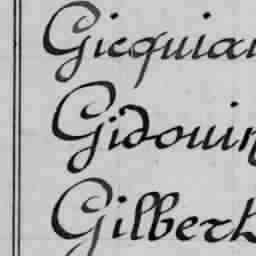 Gicquiau
Gidouin
Gilbert